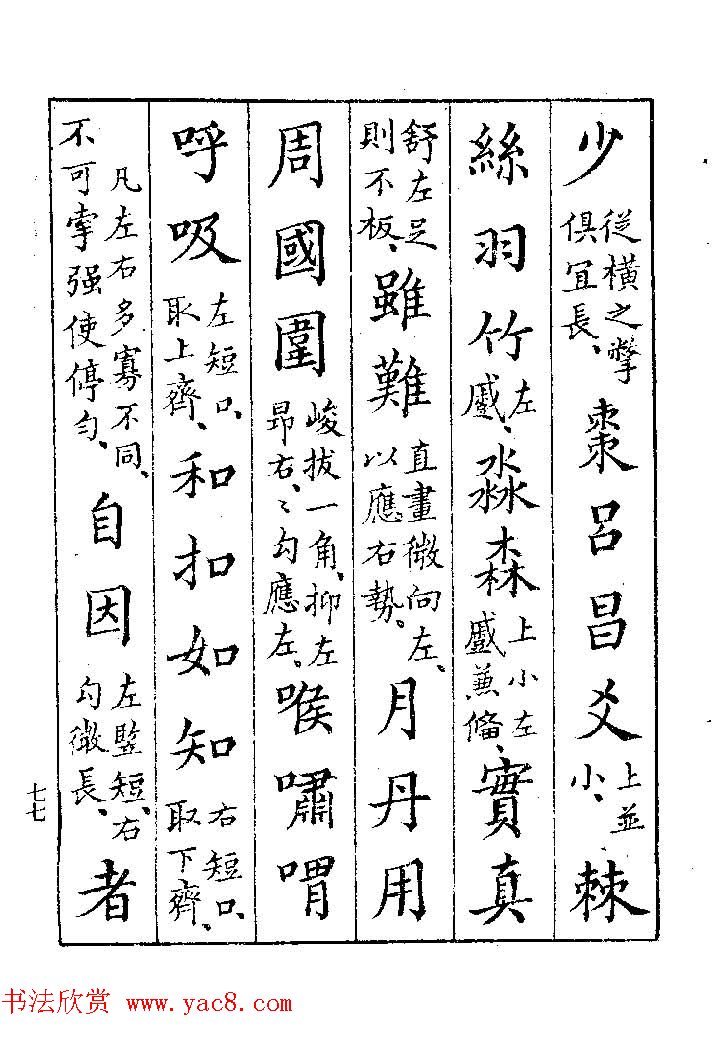 少從橫之撆俱宜長、棗呂昌爻上並小、棘
絲羽竹左蹙、淼森上小左蹙兼俻、實真
舒左足則不板、雖難直畫微向左、以應右勢、月丹用
周國圍峻拔一角、抑左昂右、〻勾應左、喉嘯喟
呼吸左短口、取上齊、和扣如知右短口、取下齊、
凡左右多寡不同、不可牽强使停勻、自因左竪短、右勾微長、者
七七
书法欣赏 www.yac8.com